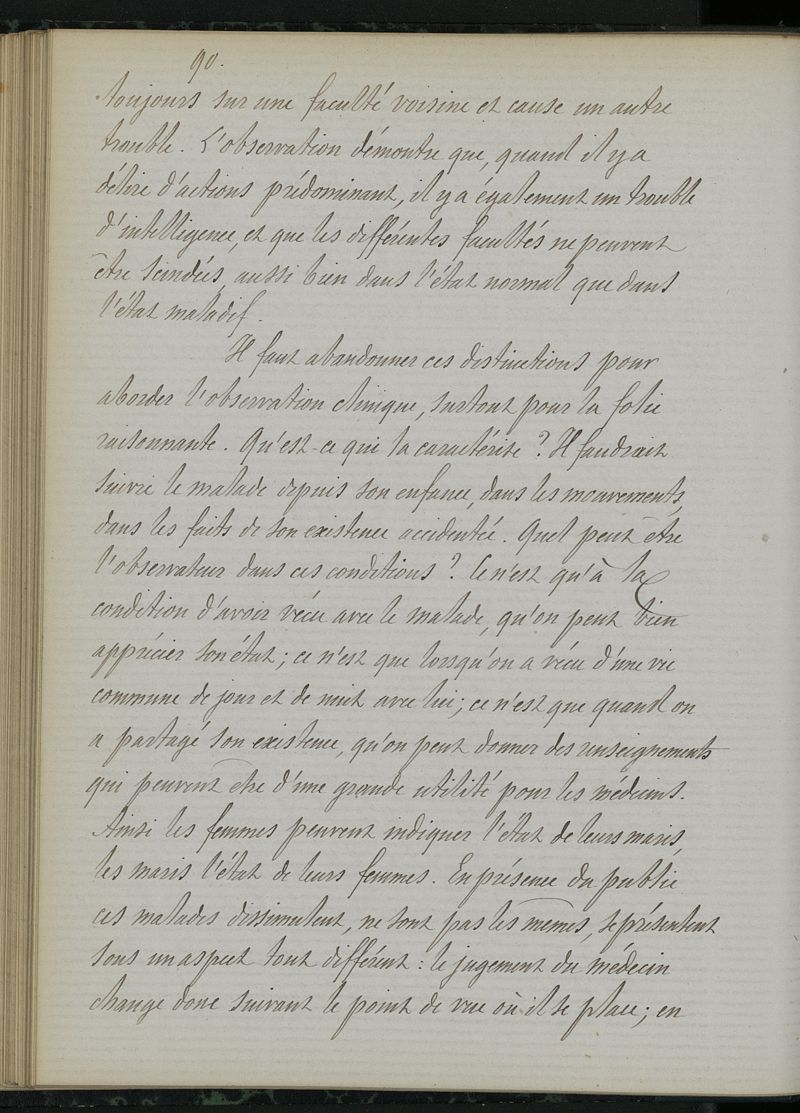 90.
toujours sur une faculté voisine et cause un autre
trouble. L'observation démontre que, quand il y a
délire d'actions prédominant, il y a également un trouble
d'intelligence, et que les différentes facultés ne peuvent
être scindées, aussi bien dans l'état normal que dans
l'état maladif.
Il faut abandonner ces distinctions pour
aborder l'observation clinique, surtout pour la folie
raisonnante. Qu'est-ce qui la caractérise ? Il faudrait
suivre le malade depuis son enfance, dans les mouvements,
dans les faits de son existence accidentée. Quel peut être
l'observateur dans ces conditions ? Ce n'est qu'à la
condition d'avoir vécu avec le malade, qu'on peut bien
apprécier son état ; ce n'est que lorsqu'on a vécu d'une vie
commune de jour et de nuit avec lui ; ce n'est que quand on
a partagé son existence, qu'on peut donner des renseignements
qui peuvent etre d'une grande utilité pour les médecins.
Ainsi les femmes peuvent indiquer l'état de leurs maris,
les maris l'état de leurs femmes. En présence du public
ces malades dissimulent, ne sont pas les mêmes, se présentent
sous un aspect tout différent : le jugement du médecin
change donc suivant le point de vue où il se place ; en